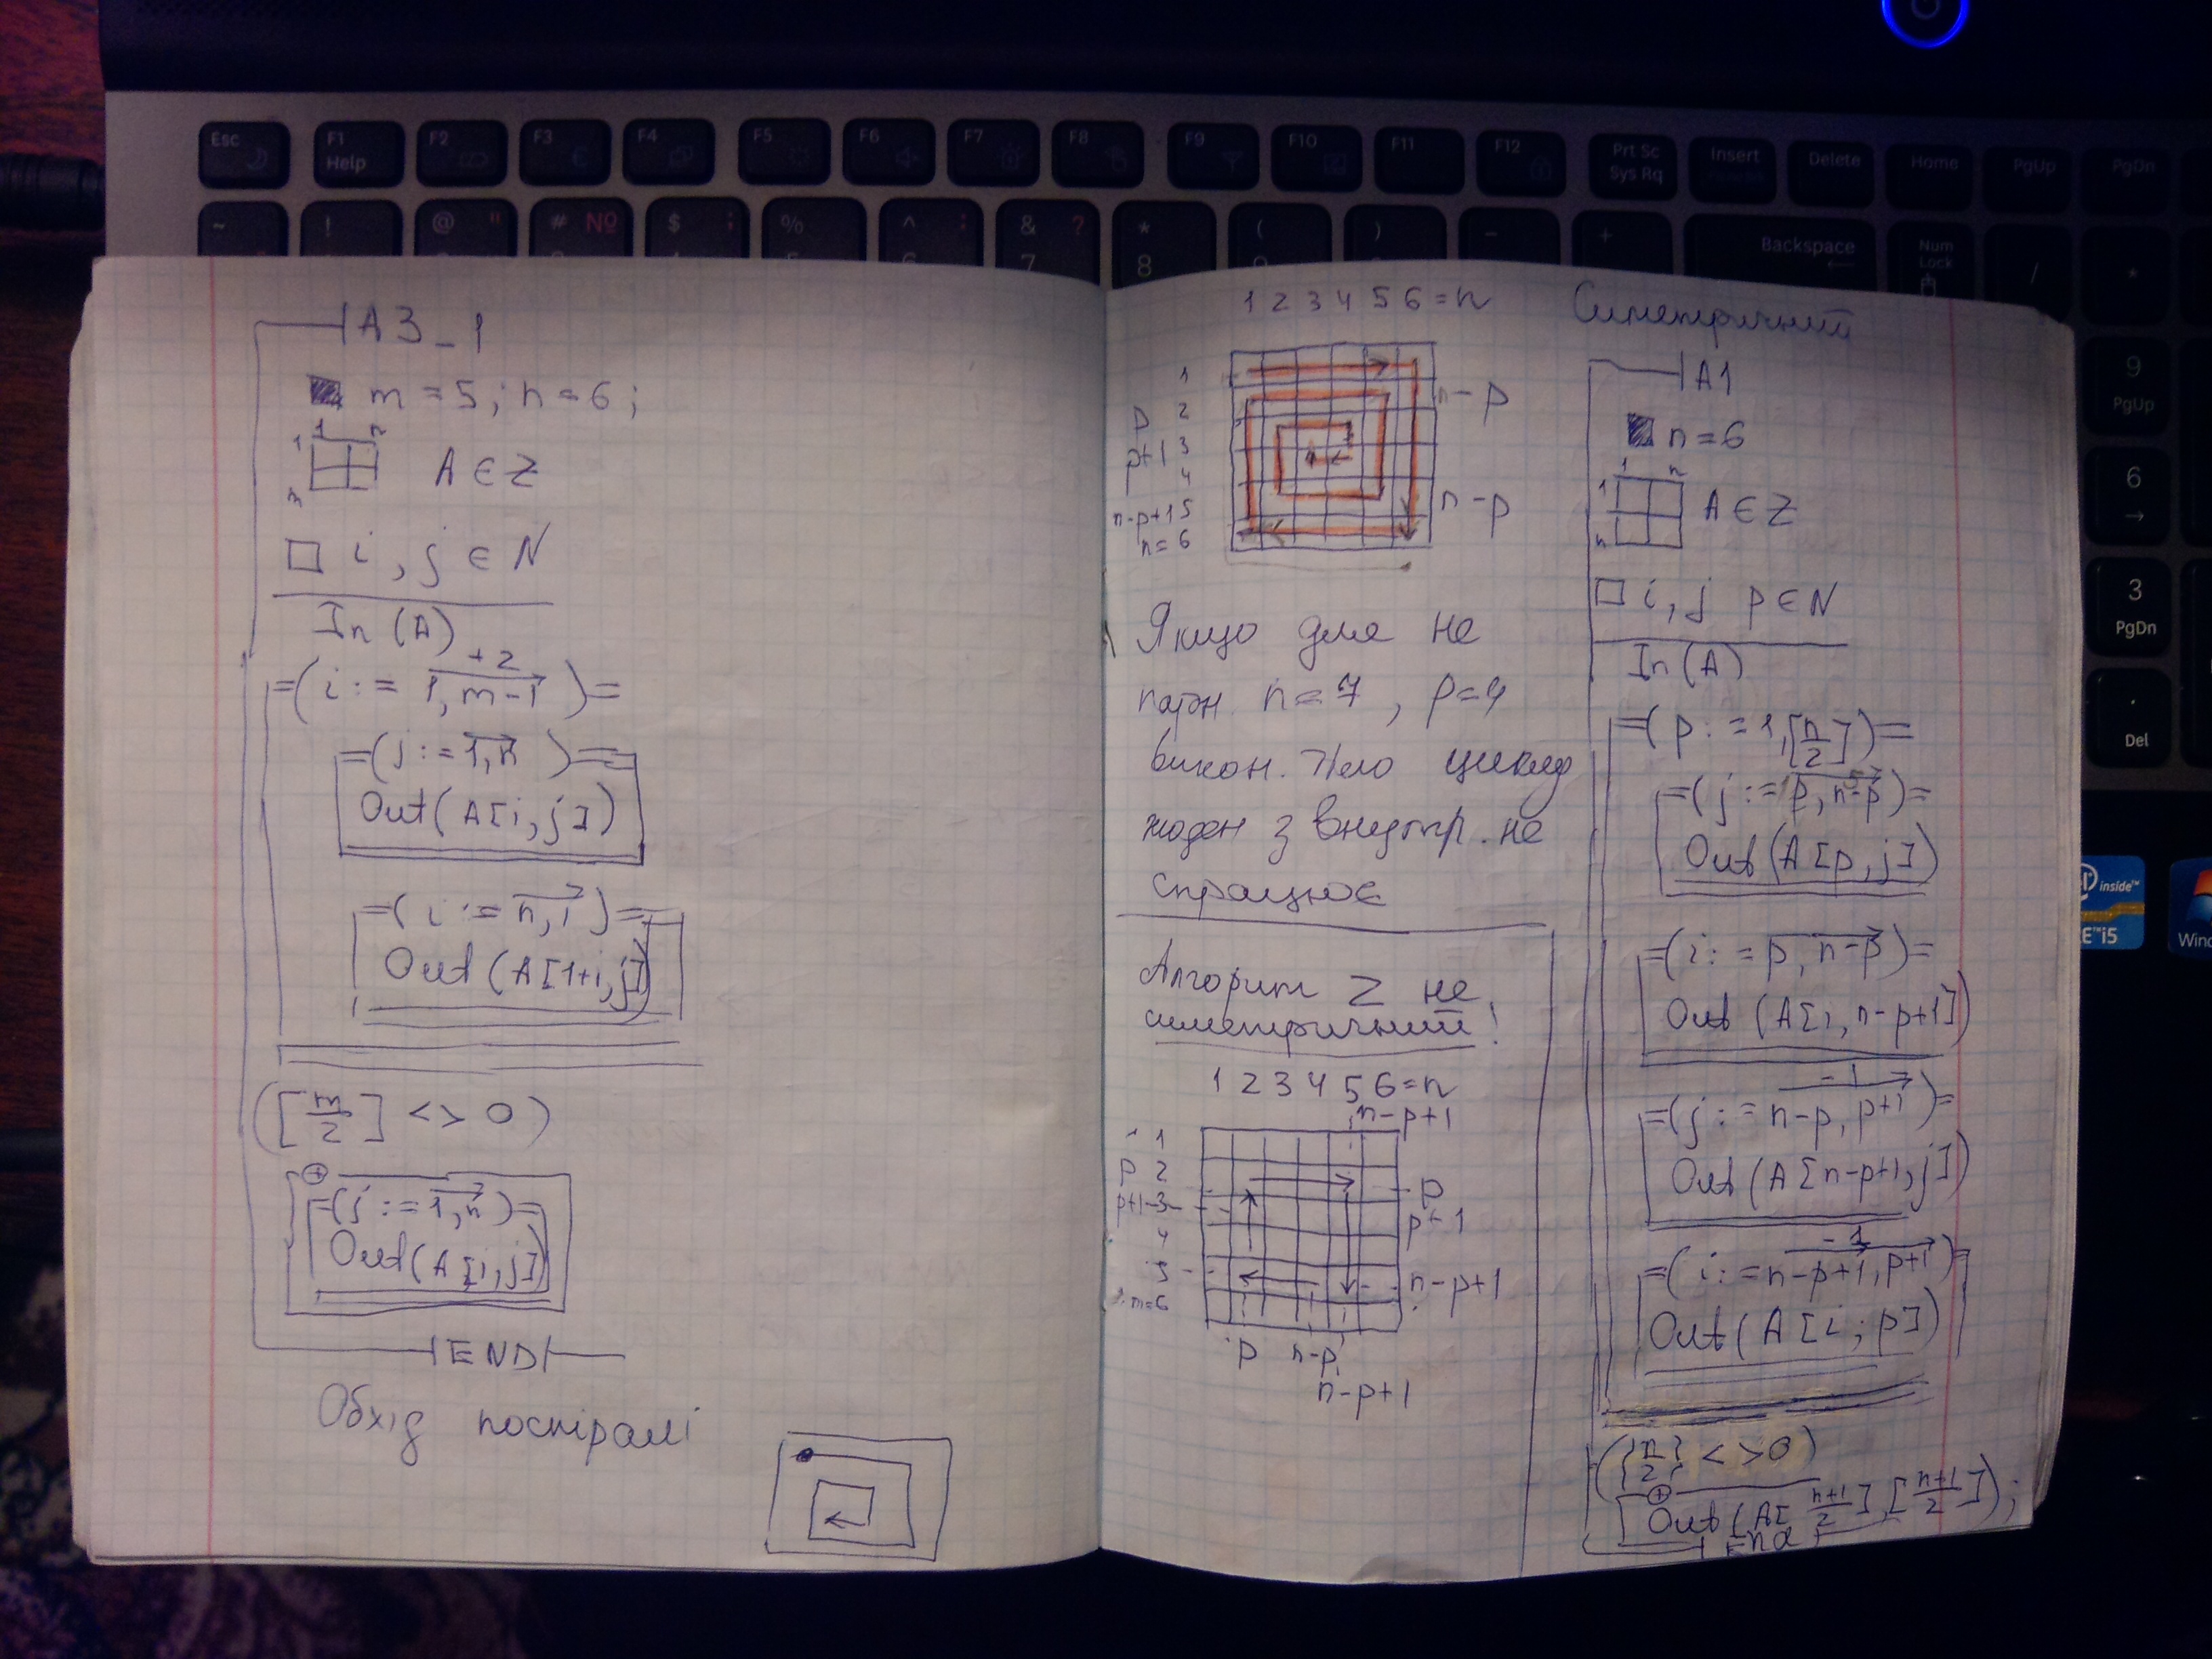 Esc
F1
Help
F2
F3
F4
F5
F6
F7
F8
F9
F10
F11
F12
Prt Sc
Sys Rq
Insert
Delete
Home
PgUp
PgDn
~
!
@ "
# №
$ ;
%
^ :
& ?
*
(
)
−
+
Backspace
Num
Lock
/
*
7
8
9
PgUp
6
3
PgDn
.
Del
inside™
™i5
Wind
A3_1
m = 5; n = 6;
1 n
1
A ∈ Z
□ i, j ∈ N
In (A)
+2
=(i := 1, m-1)=
=(j := 1, n)=
Out(A[i, j])
=(i := n, 1)=
Out(A[1+i, j])
([m/2] <> 0)
+
=(j := 1, n)=
Out(A[i, j])
END
Обхід поспіралі
1 2 3 4 5 6 = n
1
p 2
p+1 3
4
n-p+1 5
n = 6
n-p
n-p
Якщо для не
парн. n = 7, p=4
викон. тіло циклу
жоден з внутр. не
спрацює
Алгоритм 2 не
симетричний!
1 2 3 4 5 6 = n
n-p+1
1
p 2
p+1-3-
4
5
m=6
p
p+1
n-p+1
p n-p
n-p+1
Симетричний
A1
n = 6
1 n
1
n
A ∈ Z
□ i, j p ∈ N
In (A)
=(p := 1, [n/2])=
=(j := p, n-p)=
Out (A[p, j])
=(i := p, n-p)=
Out (A[i, n-p+1])
-1
=(j := n-p, p+1)=
Out (A[n-p+1, j])
-1
=(i := n-p+1, p+1)=
Out (A[i; p])
({n/2} <> 0)
+
Out (A[n+1/2], [n+1/2]);
End